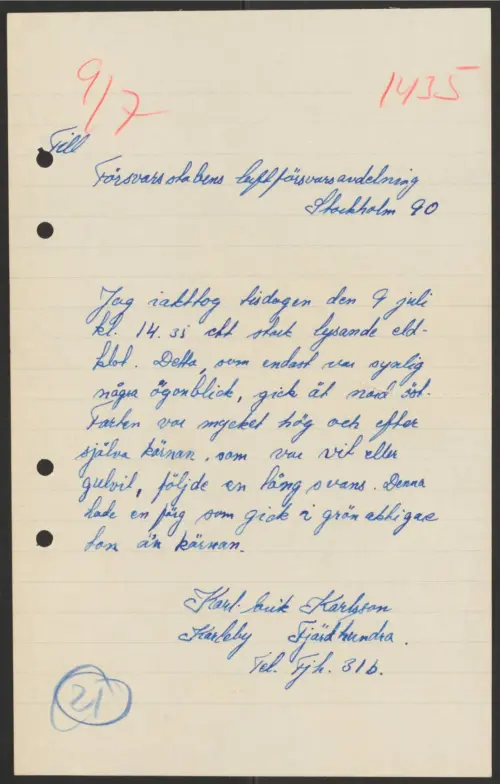 9/7
1435
Till
Försvarsstabens luftförsvarsavdelning
Stockholm 90
Jag iakttog tisdagen den 9 juli
kl. 14.35 ett stort lysande eld-
klot. Detta, som endast var synlig
några ögonblick, gick åt nord öst.
Farten var mycket hög och efter
själva kärnan, som var vit eller
gulvit, följde en lång svans. Denna
hade en färg som gick i grönaktigare
ton än kärnan.
Karl-Erik Karlsson
Karleby Fjärdhundra.
Tel. Fjh. 31b.
21